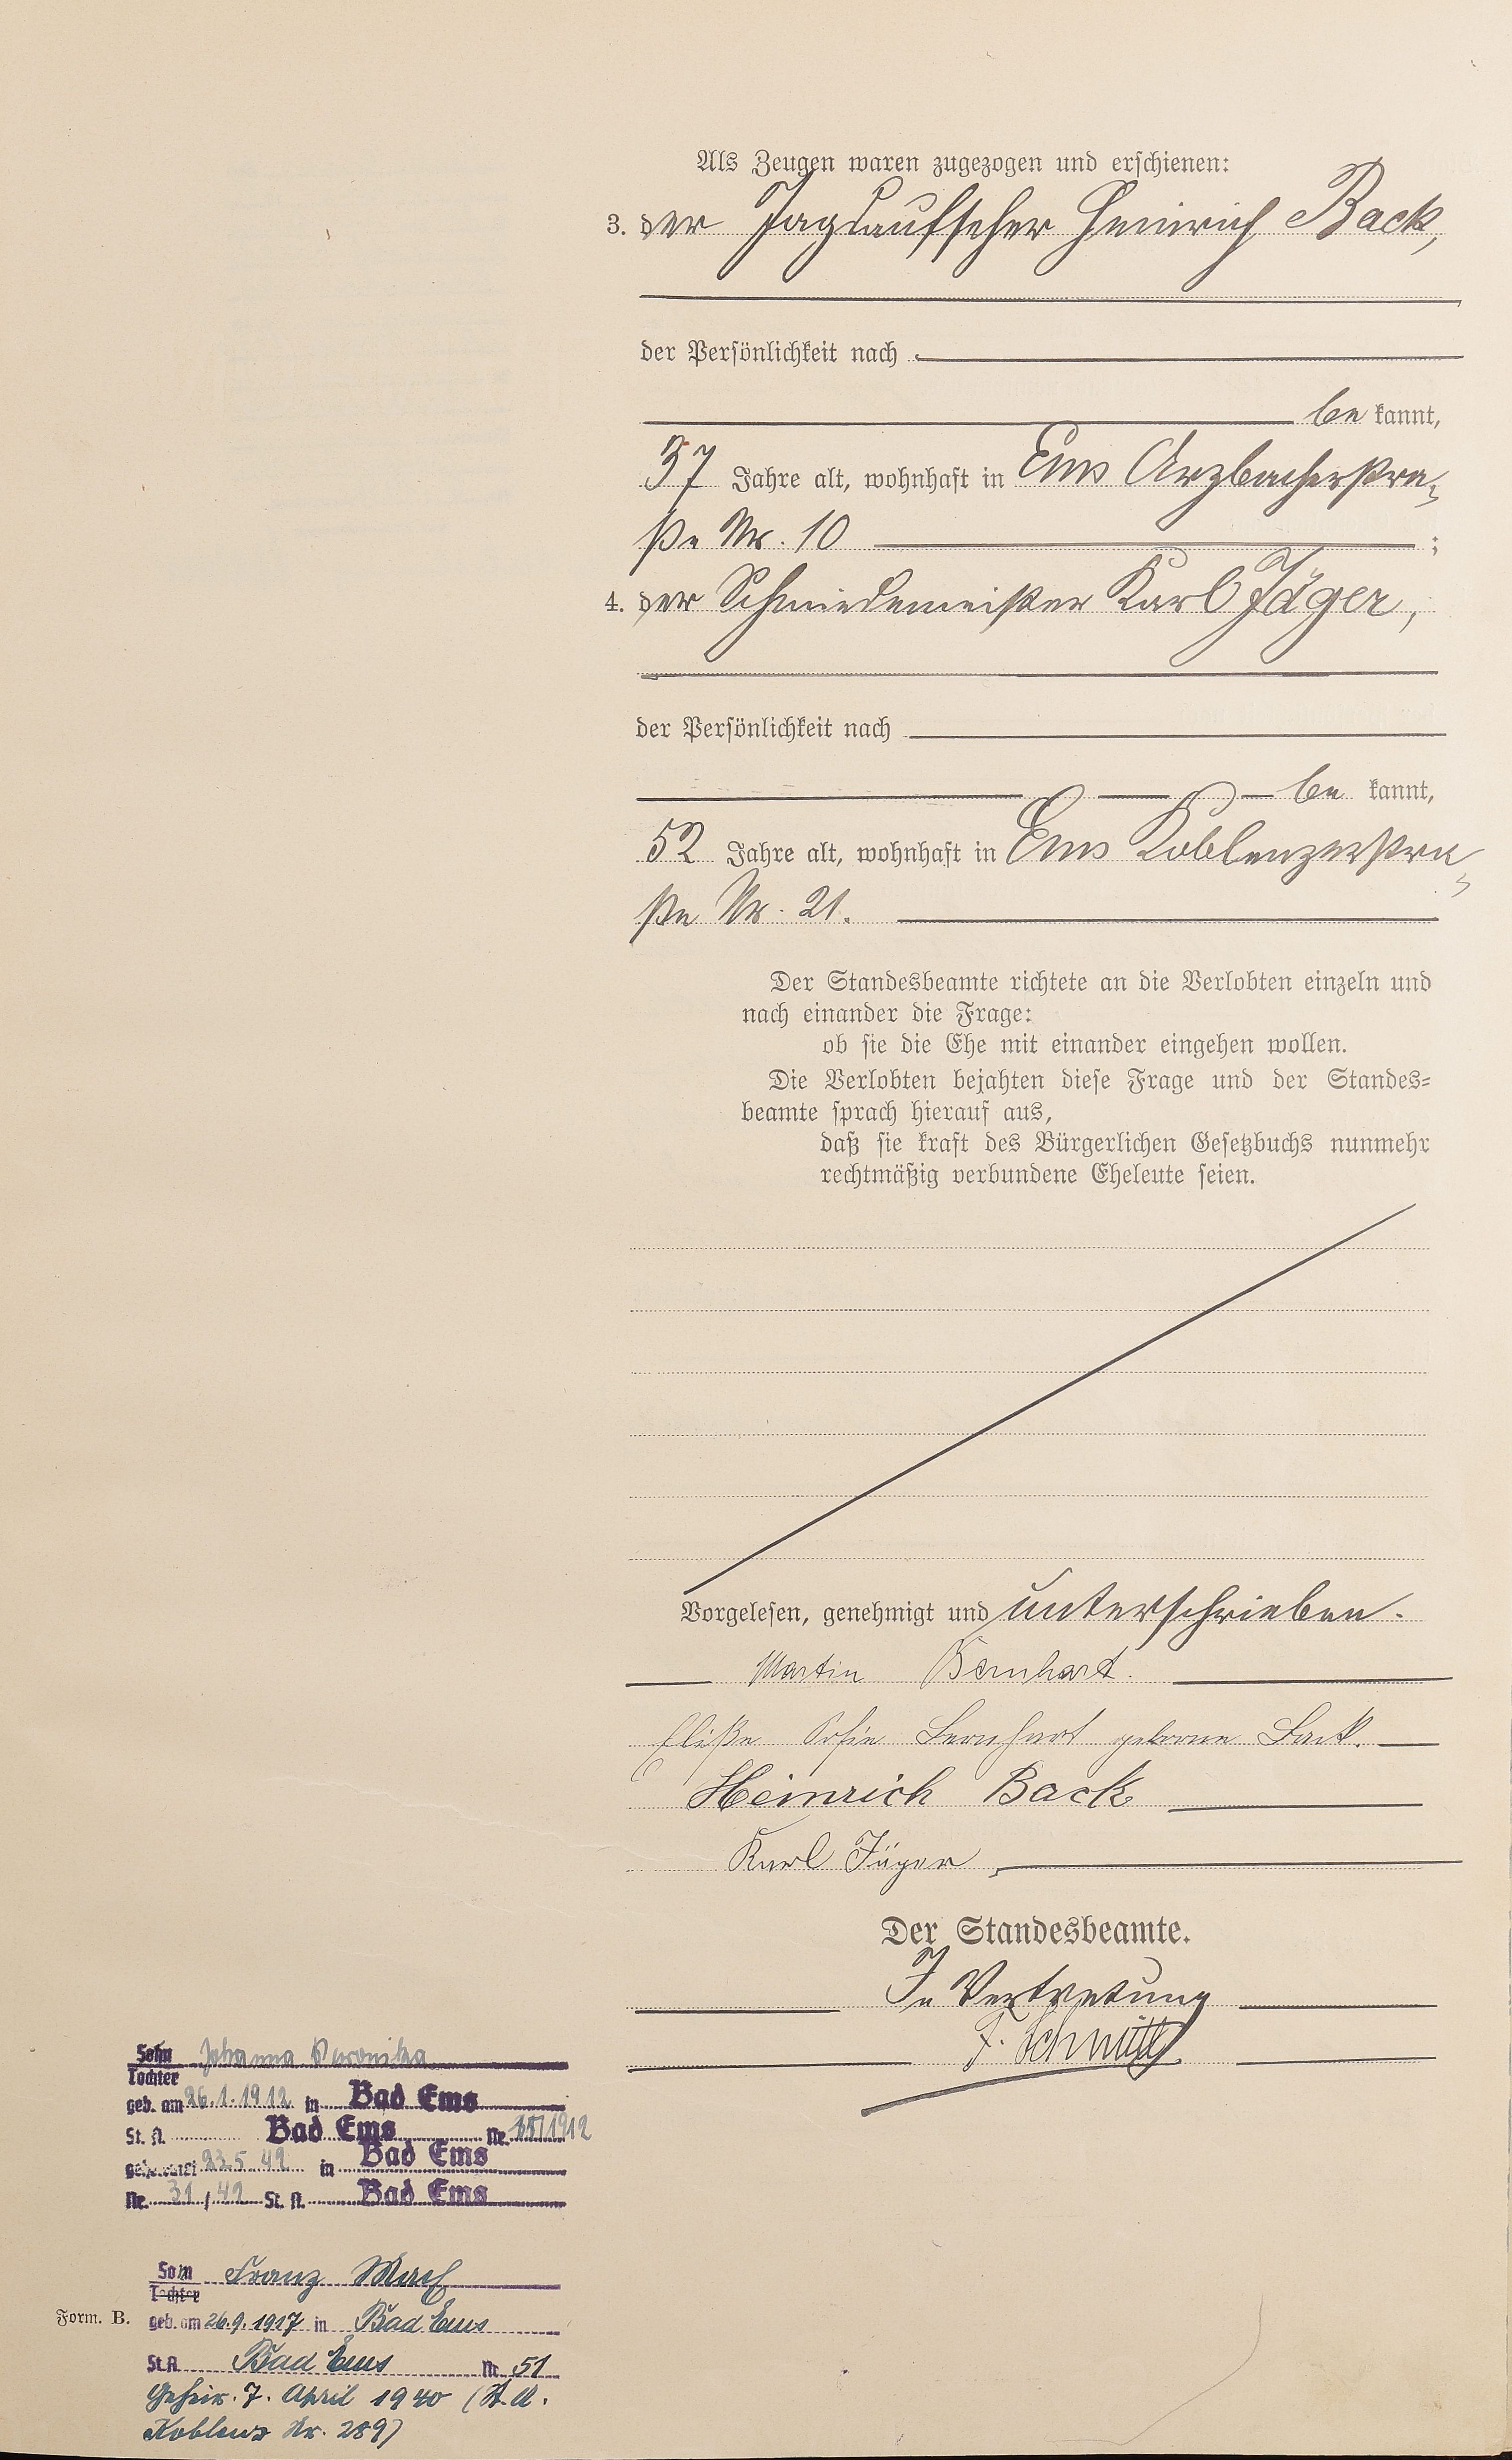 Als Zeugen waren zugezogen und erschienen:
3. der Jagdaufseher Heinrich Back,
der Persönlichkeit nach
be kannt,
37 Jahre alt, wohnhaft in Ems Arzbacherstra-
ße Nr. 10 ;
4. der Schmiedemeister Karl Jäger,
der Persönlichkeit nach
be kannt,
52 Jahre alt, wohnhaft in Ems Koblenzerstra-
ße Nr. 21.
Der Standesbeamte richtete an die Verlobten einzeln und
nach einander die Frage:
ob sie die Ehe mit einander eingehen wollen.
Die Verlobten bejahten diese Frage und der Standes-
beamte sprach hierauf aus,
daß sie kraft des Bürgerlichen Gesetzbuchs nunmehr
rechtmäßig verbundene Eheleute seien.
Vorgelesen, genehmigt und unterschrieben.
Martin Bernhart.
Sofie Bernhart geborene Back.
Heinrich Back
Karl Jäger
Der Standesbeamte.
In Vertretung
F. Schmitt
Sohn Johanna Veronika
Tochter
geb. am 26.1.1912 in Bad Ems
St. A. Bad Ems Nr. /1912
geheiratet 23.5 42 in Bad Ems
Nr. 31/42 St. A. Bad Ems
Sohn Franz
Tochter
Form. B.
geb. am 26.9.1917 in Bad Ems
St.A. Bad Ems Nr. 51
Geheir. 7. April 1940 (St.A.
Koblenz Nr. 289)